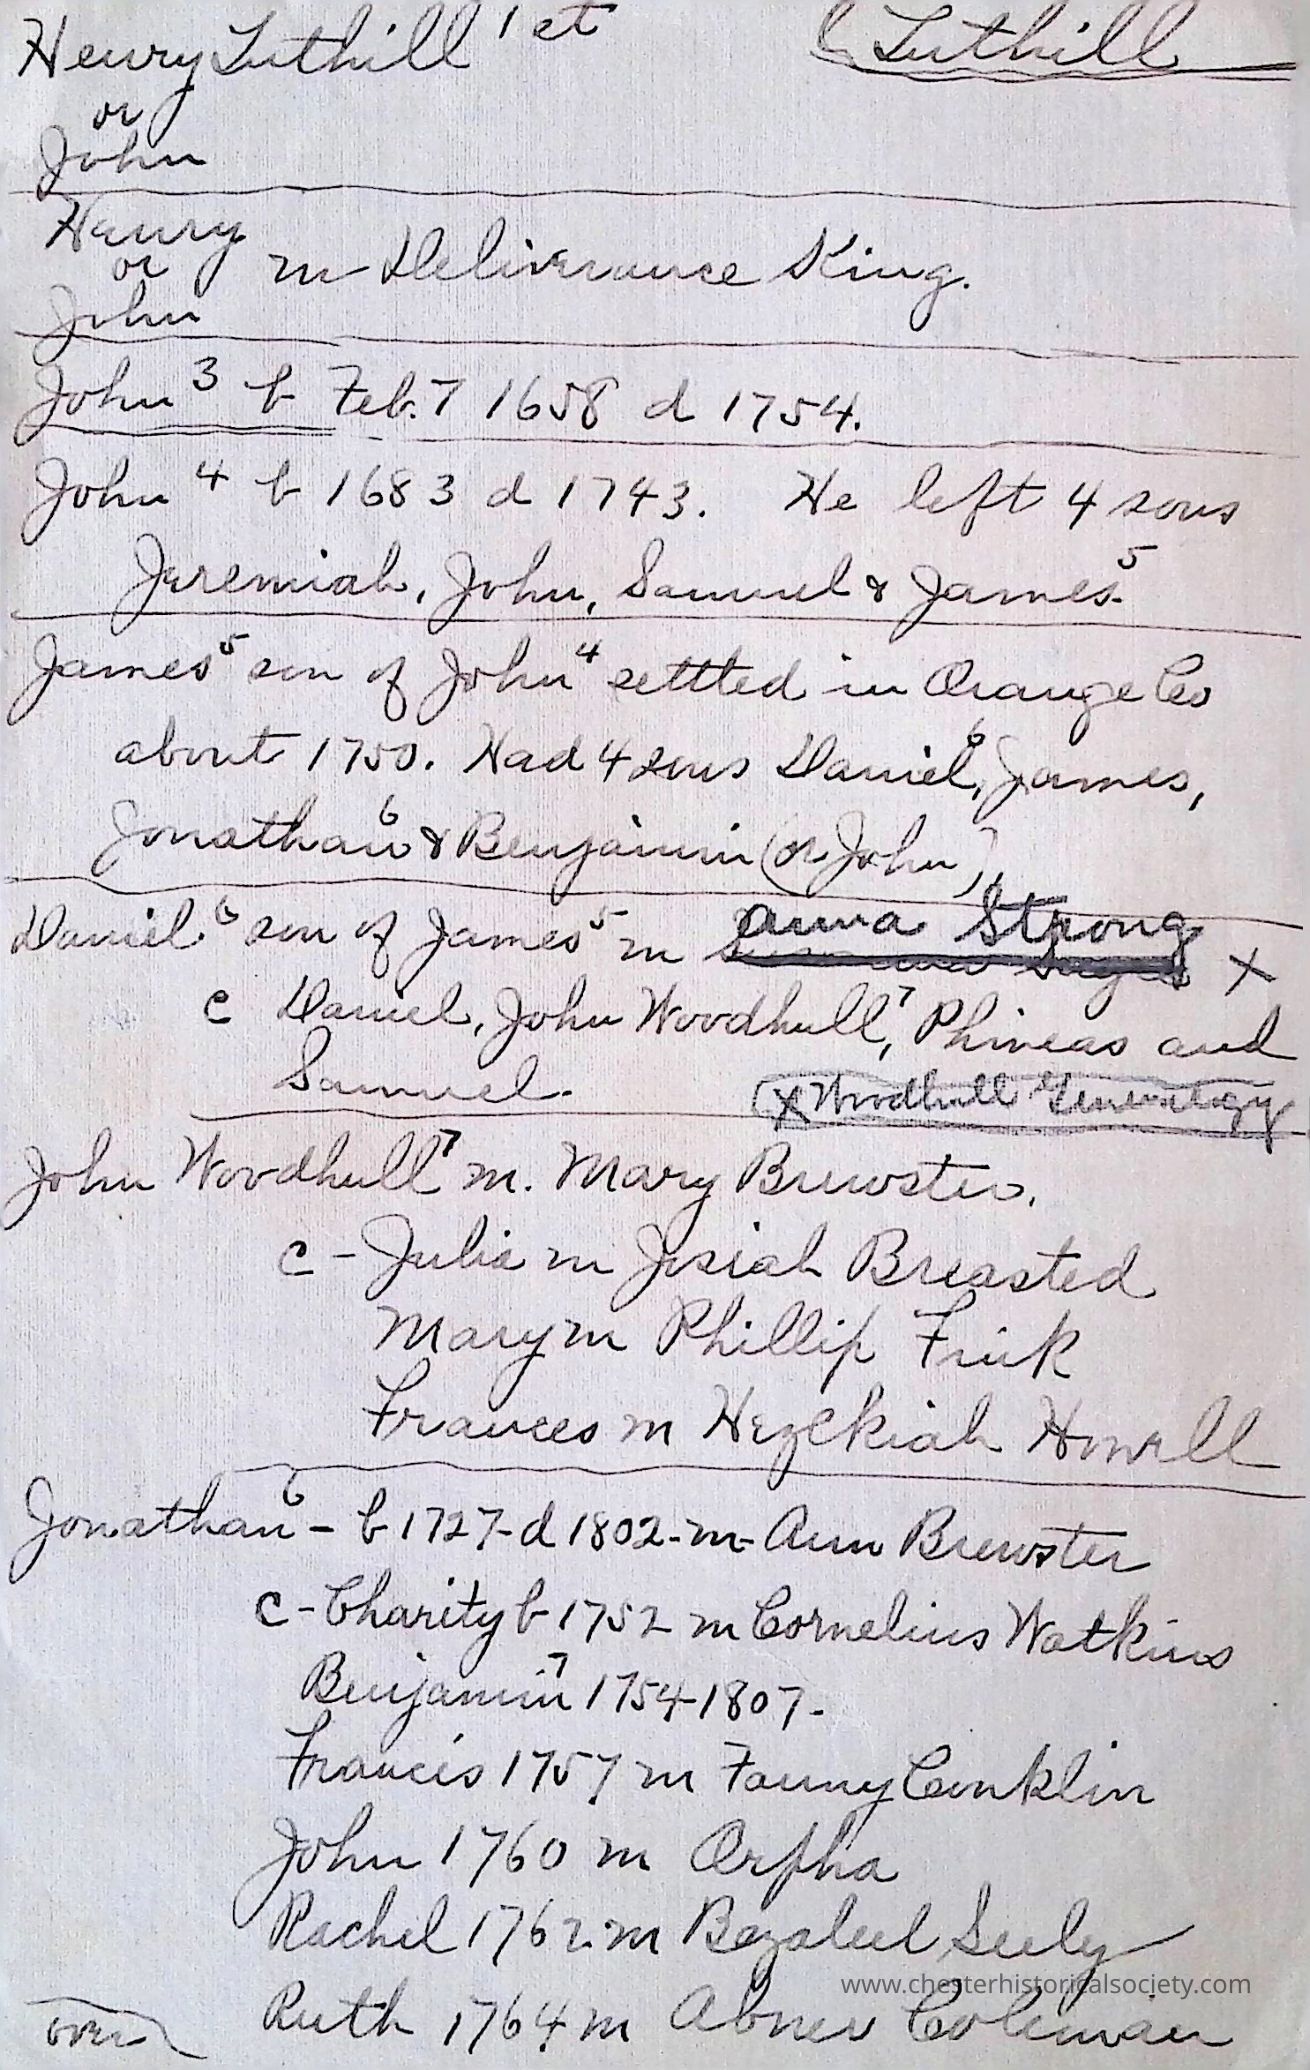 Henry Tuthill 1st Tuthill
or
John
Henry
or m Deliverance King.
John
John 3 b Feb. 7 1658 d 1754.
John 4 b 1683 d 1743. He left 4 sons
Jeremiah, John, Samuel & James 5
James 5 son of John 4 settled in Orange Co
about 1750. Had 4 sons Daniel 6, James,
Jonathan 6 & Benjamin (or John),
Daniel 6 son of James 5 m Anna Strong X
c Daniel, John Woodhull 7, Phineas and
Samuel.
(X Woodhull Genealogy
John Woodhull 7 m. Mary Brewster.
c - Julia m Josiah Breasted
Mary m Phillip Fink
Frances m Hezekiah Howell
Jonathan 6 - b 1727 - d 1802 - m - Ann Brewster
c - Charity b 1752 m Cornelius Watkins
Benjamin 7 1754-1807 -
Francis 1757 m Fanny Conklin
John 1760 m Orpha
Rachel 1762 m Bezaleel Seely
www.chesterhistoricalsociety.com
Ruth 1764 m Abner Coleman
over